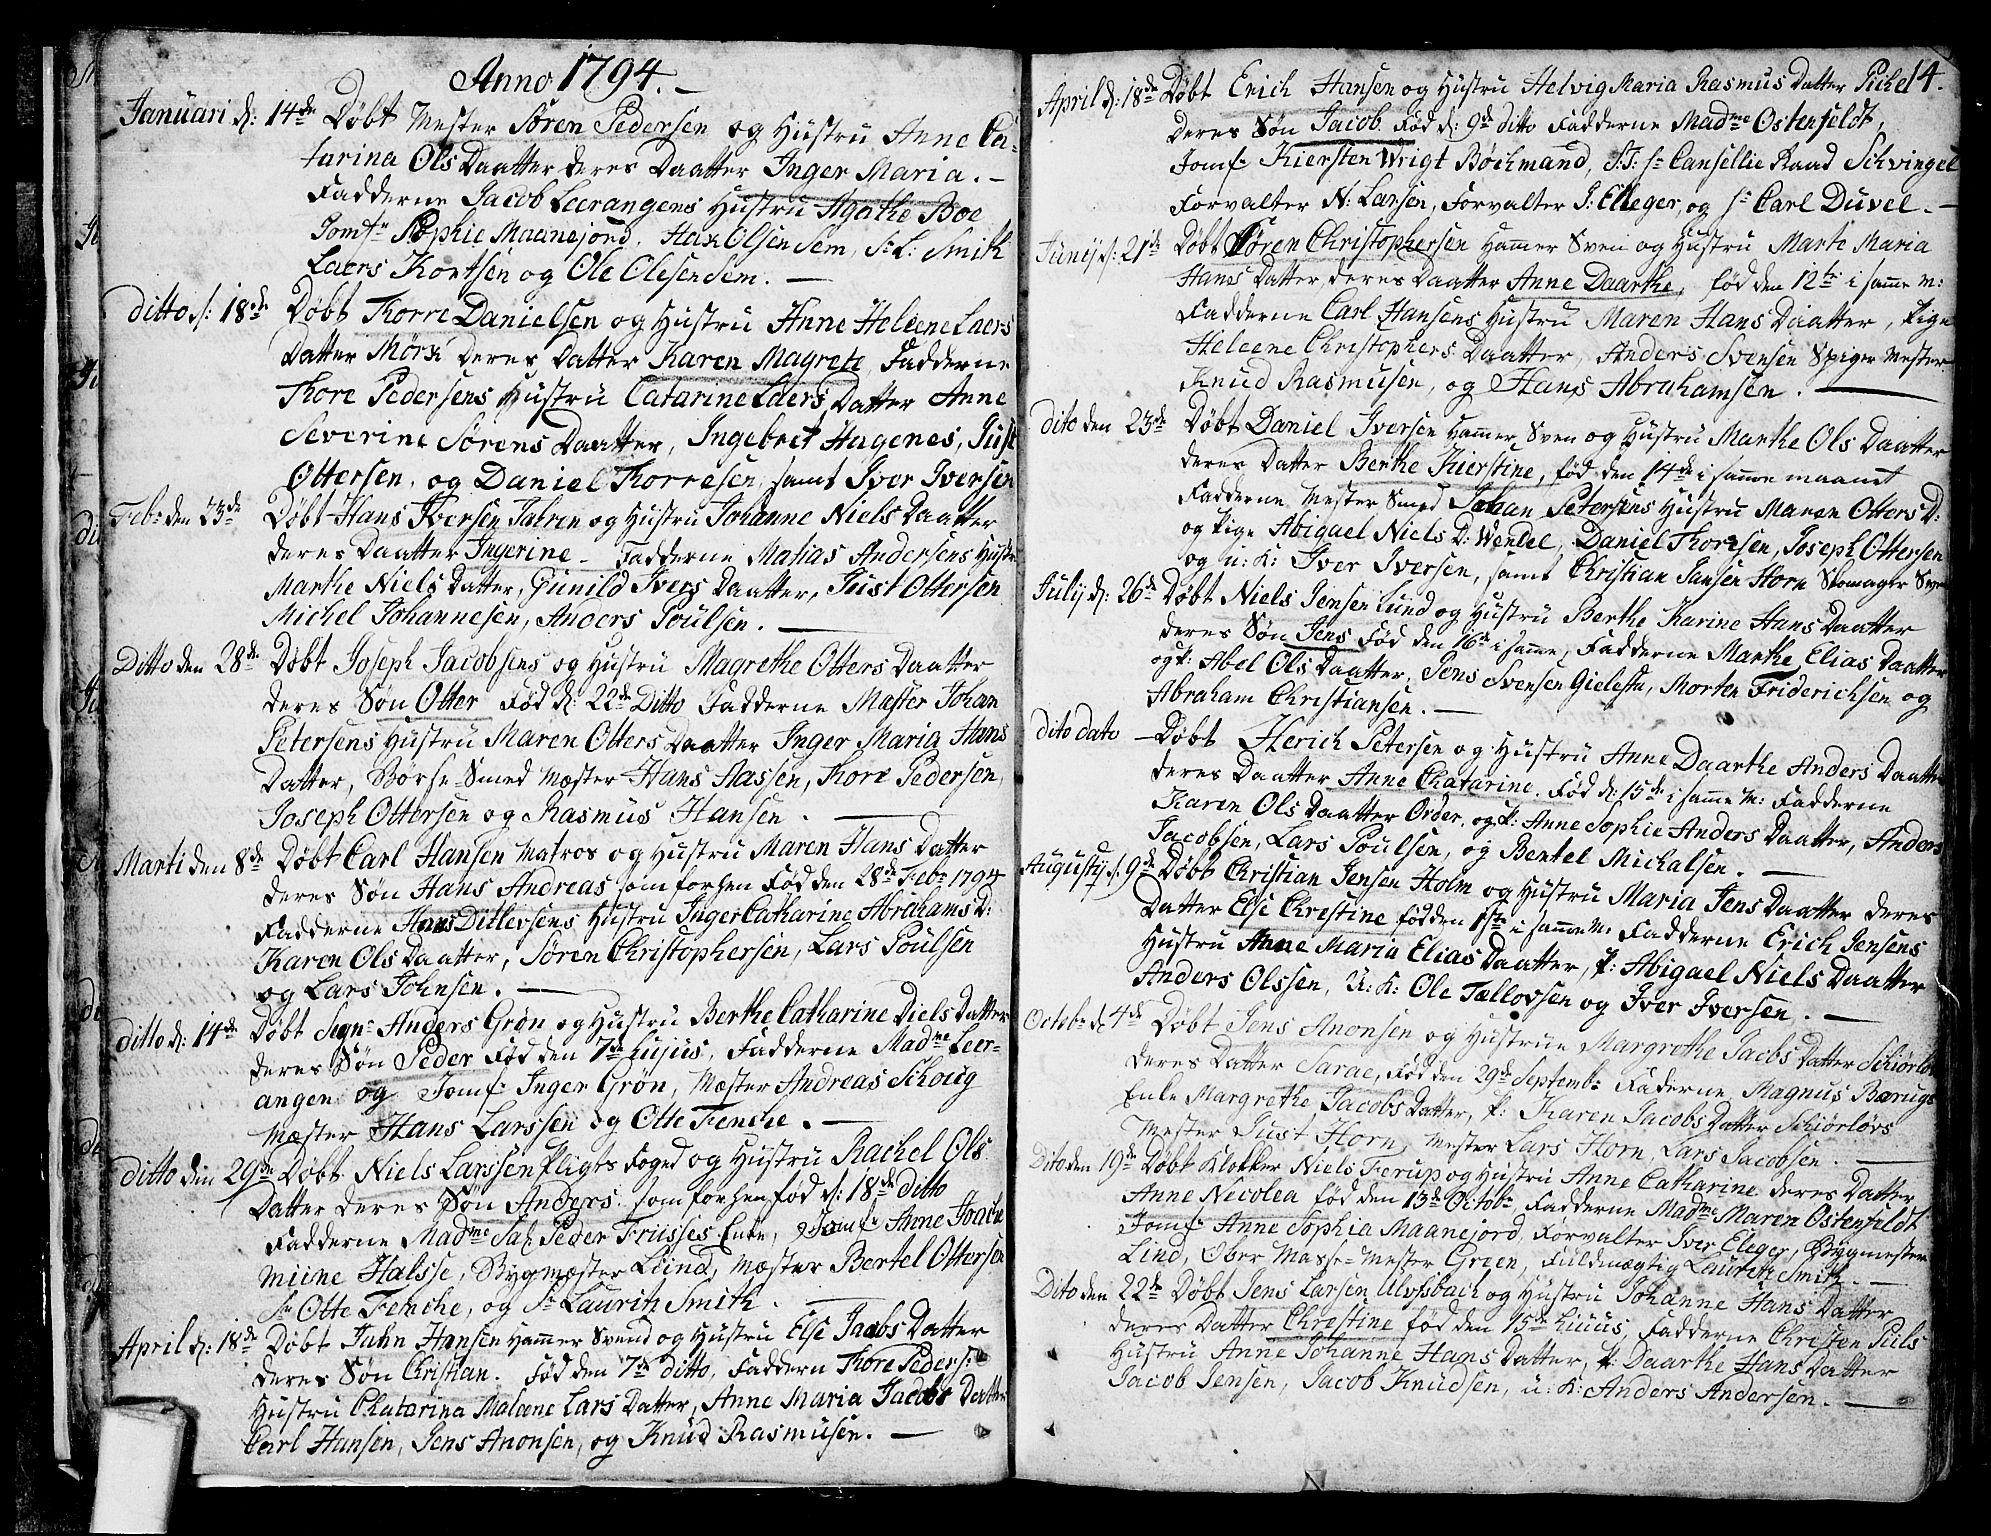 Anno 1794.
Januari d: 14de Døbt Mester Søren Pedersen og Hustru Anne Ca-
tarina Ols Daatter deres Daatter Inger Maria.
Fadderne Jacob Leerangens Hustru Agathe Boe
Jomfr Sophie Maanejord, Hax Olsen Sem, Sr L: Smith
Laers Kortsen og Ole Olesen Sem.
ditto d: 18de Døbt Thorre Danielsen og Hustru Anne Heleene Laers
Datter Mørk deres Datter Karen Magrete, Fadderne
Thore Pedersens Hustru Catarine Laers Datter Anne
Severine Sørens Daatter, Ingebret Hagenes, Just
Ottersen, og Daniel Thorresen, samt Iver Iversen
Feb: den 23de Døbt Hans Iversen Jahren og Hustru Johanne Niels Daatter
deres Daatter Ingerine – Fadderne Matias Andersens Hustr
Marthe Niels Datter, Gunild Ivers Daatter, Just Ottersen
Michel Johannesen, Anders Poulsen.
Ditto den 28de Døbt Joseph Jacobsens og Hustru Magrethe Otters Daatter
deres Søn Otter Fød d: 22de Ditto Fadderne Mæster Johan
Petersens Hustru Maren Otters Daatter Inger Maria Hans
Datter, Børse-Smed Mæster Hans Aassen, Thore Pedersen
Joseph Ottersen og Rasmus Hansen.
Marti den 8de Døbt Carl Hansen Matros og Hustru Maren Hans Datter
deres Søn Hans Andreas som forhen Fød den 28de Feb: 1794
Fadderne Hans Ditlevsens Hustru Inger Catharine Abrahams D:
Karen Ols Daatter, Søren Christophersen, Lars Poulsen
og Lars Johnsen.
ditto d: 14de Døbt Segn: Anders Grøn og Hustru Berthe Catharine Diels Datter
deres Søn Peder Fød den 7de hujus, Fadderne Madme Leer-
angen og Jomf: Inger Grøn, Mæster Andreas Schoug
Mæster Hans Larssen og Otte Fenche.
ditto den 29de Døbt Niels Larssen Pligts Foged og Hustru Rachel Ols
Datter deres Søn Anders som forhen fød d: 18de ditto
Fadderne Madme Sal: Peder Friisses Enke, Jomf: Anne Joache
Miine Halsse, Bygmæster Lund, Mæster Bertel Ottersen
Sr Otte Fenche, og Sr Lauritz Smith.
April d: 18de Døbt Juhn Hansen Hammer Svend og Hustru Else Jacobs Datter
deres Søn Christian. Fød den 7de ditto, Faddern Thore Peders:
Hustru Chatarina Maleene Lars Datter, Anne Maria Jacobs Datter
Carl Hansen, Jens Anonsen, og Knud Rasmusen.
14.
April d: 18de Døbt Erich Hansen og Hustru Helvig Maria Rasmus Datter Pihel
deres Søn Jacob Fød d: 9de ditto Fadderne Madme Ostenfeldt,
Jomf: Kiersten Wrigt Bøchmand, S: T: Hr Cansellie Raad Schvingel
Forvalter N: Larsen, Forvalter J: Elleger, og Sr Carl Duvel.
Junij d: 21de Døbt Søren Christophersen Hammer Sven og Hustru Marte Maria
Hans Datter, deres Daatter Anne Daarthe, fød den 12te i samme m:
Fadderne Carl Hansens Hustru Maren Hans Daatter, Pige
Heleene Christophers Daatter, Anders Svensen Spiger Mester
Knud Rasmusen, og Hans Abrahamsen.
dito den 23de Døbt Daniel Iversen Hammer Sven og Hustru Marthe Ols Daatter
deres Datter Berthe Kierstine, fød den 14de i samme maanet
Fadderne Mester Smed Johan Petersens Hustru Maren Otters D:
og Pige Abigael Niels D: Wentel, Daniel Thoresen, Joseph Ottersen
og u: K: Iver Iversen, samt Christian Jansen Horn Skomager Sven
Julij d: 26de Døbt Niels Jensen Lund og Hustru Berthe Karine Hans Daatter
deres Søn Jens Fød den 16de i samme, Fadderne Marthe Elias Daatter
og P: Abel Ols Daatter, Jens Svensen Gielesta, Morten Friderichsen og
Abraham Christiansen.
dito dato – Døbt Herich Petersen og Hustru Anne Daarthe Anders Daatter
deres Daatter Anne Chatarine. Fød d: 15de i samme M: Fadderne
Karen Ols Daatter Order, og P: Anne Sophie Anders Daatter, Anders
Jacobsen, Lars Poulsen, og Bentel Michalsen.
Augustij d: 9de Døbt Christian Jensen Holm og Hustru Maria Jens Daatter deres
Datter Else Chrestine fød den 1ste i samme M: Fadderne Erich Jensens
Hustru Anne Maria Elias Daatter, P: Abigael Niels Daatter
Anders Olssen, U: K: Ole Tællovsen og Iver Iversen.
Octob: d: 4de Døbt Jens Anonsen og Hustrue Margrethe Jacobs Datter Schiørløv
deres Datter Sarae, Fød den 29de Septemb: Faderne Magnus Bærugs
Enke Margrethe Jacobs Datter, P: Karen Jacobs Datter Schiørløvs
Mester Just Horn, Mester Lars Horn, Lars Jacobsen.
Dito den 19de Døbt Klokker Niels Ferup og Hustru Anne Catharine deres Datter
Anne Nicolea fød den 13de Octob: Fadderne Madme Maren Ostenfeldt
Jomf: Anne Sophia Maanejord, Forvalter Iver Eleger, Bygmester
Lind, Ober Masse-Mester Green, Fuldmægtig Lauritz Smith.
Dito den 22de Døbt Jens Larsen Ulvsbach og Hustru Johanne Hans Datter
deres Datter Chrestine fød den 15de huuus, Fadderne Christen Piils
Hustru Anne Johanne Hans Datter, P: Daarthe Hans Datter
Jacob Jensen, Jacob Knudsen, u: K: Anders Andersen.